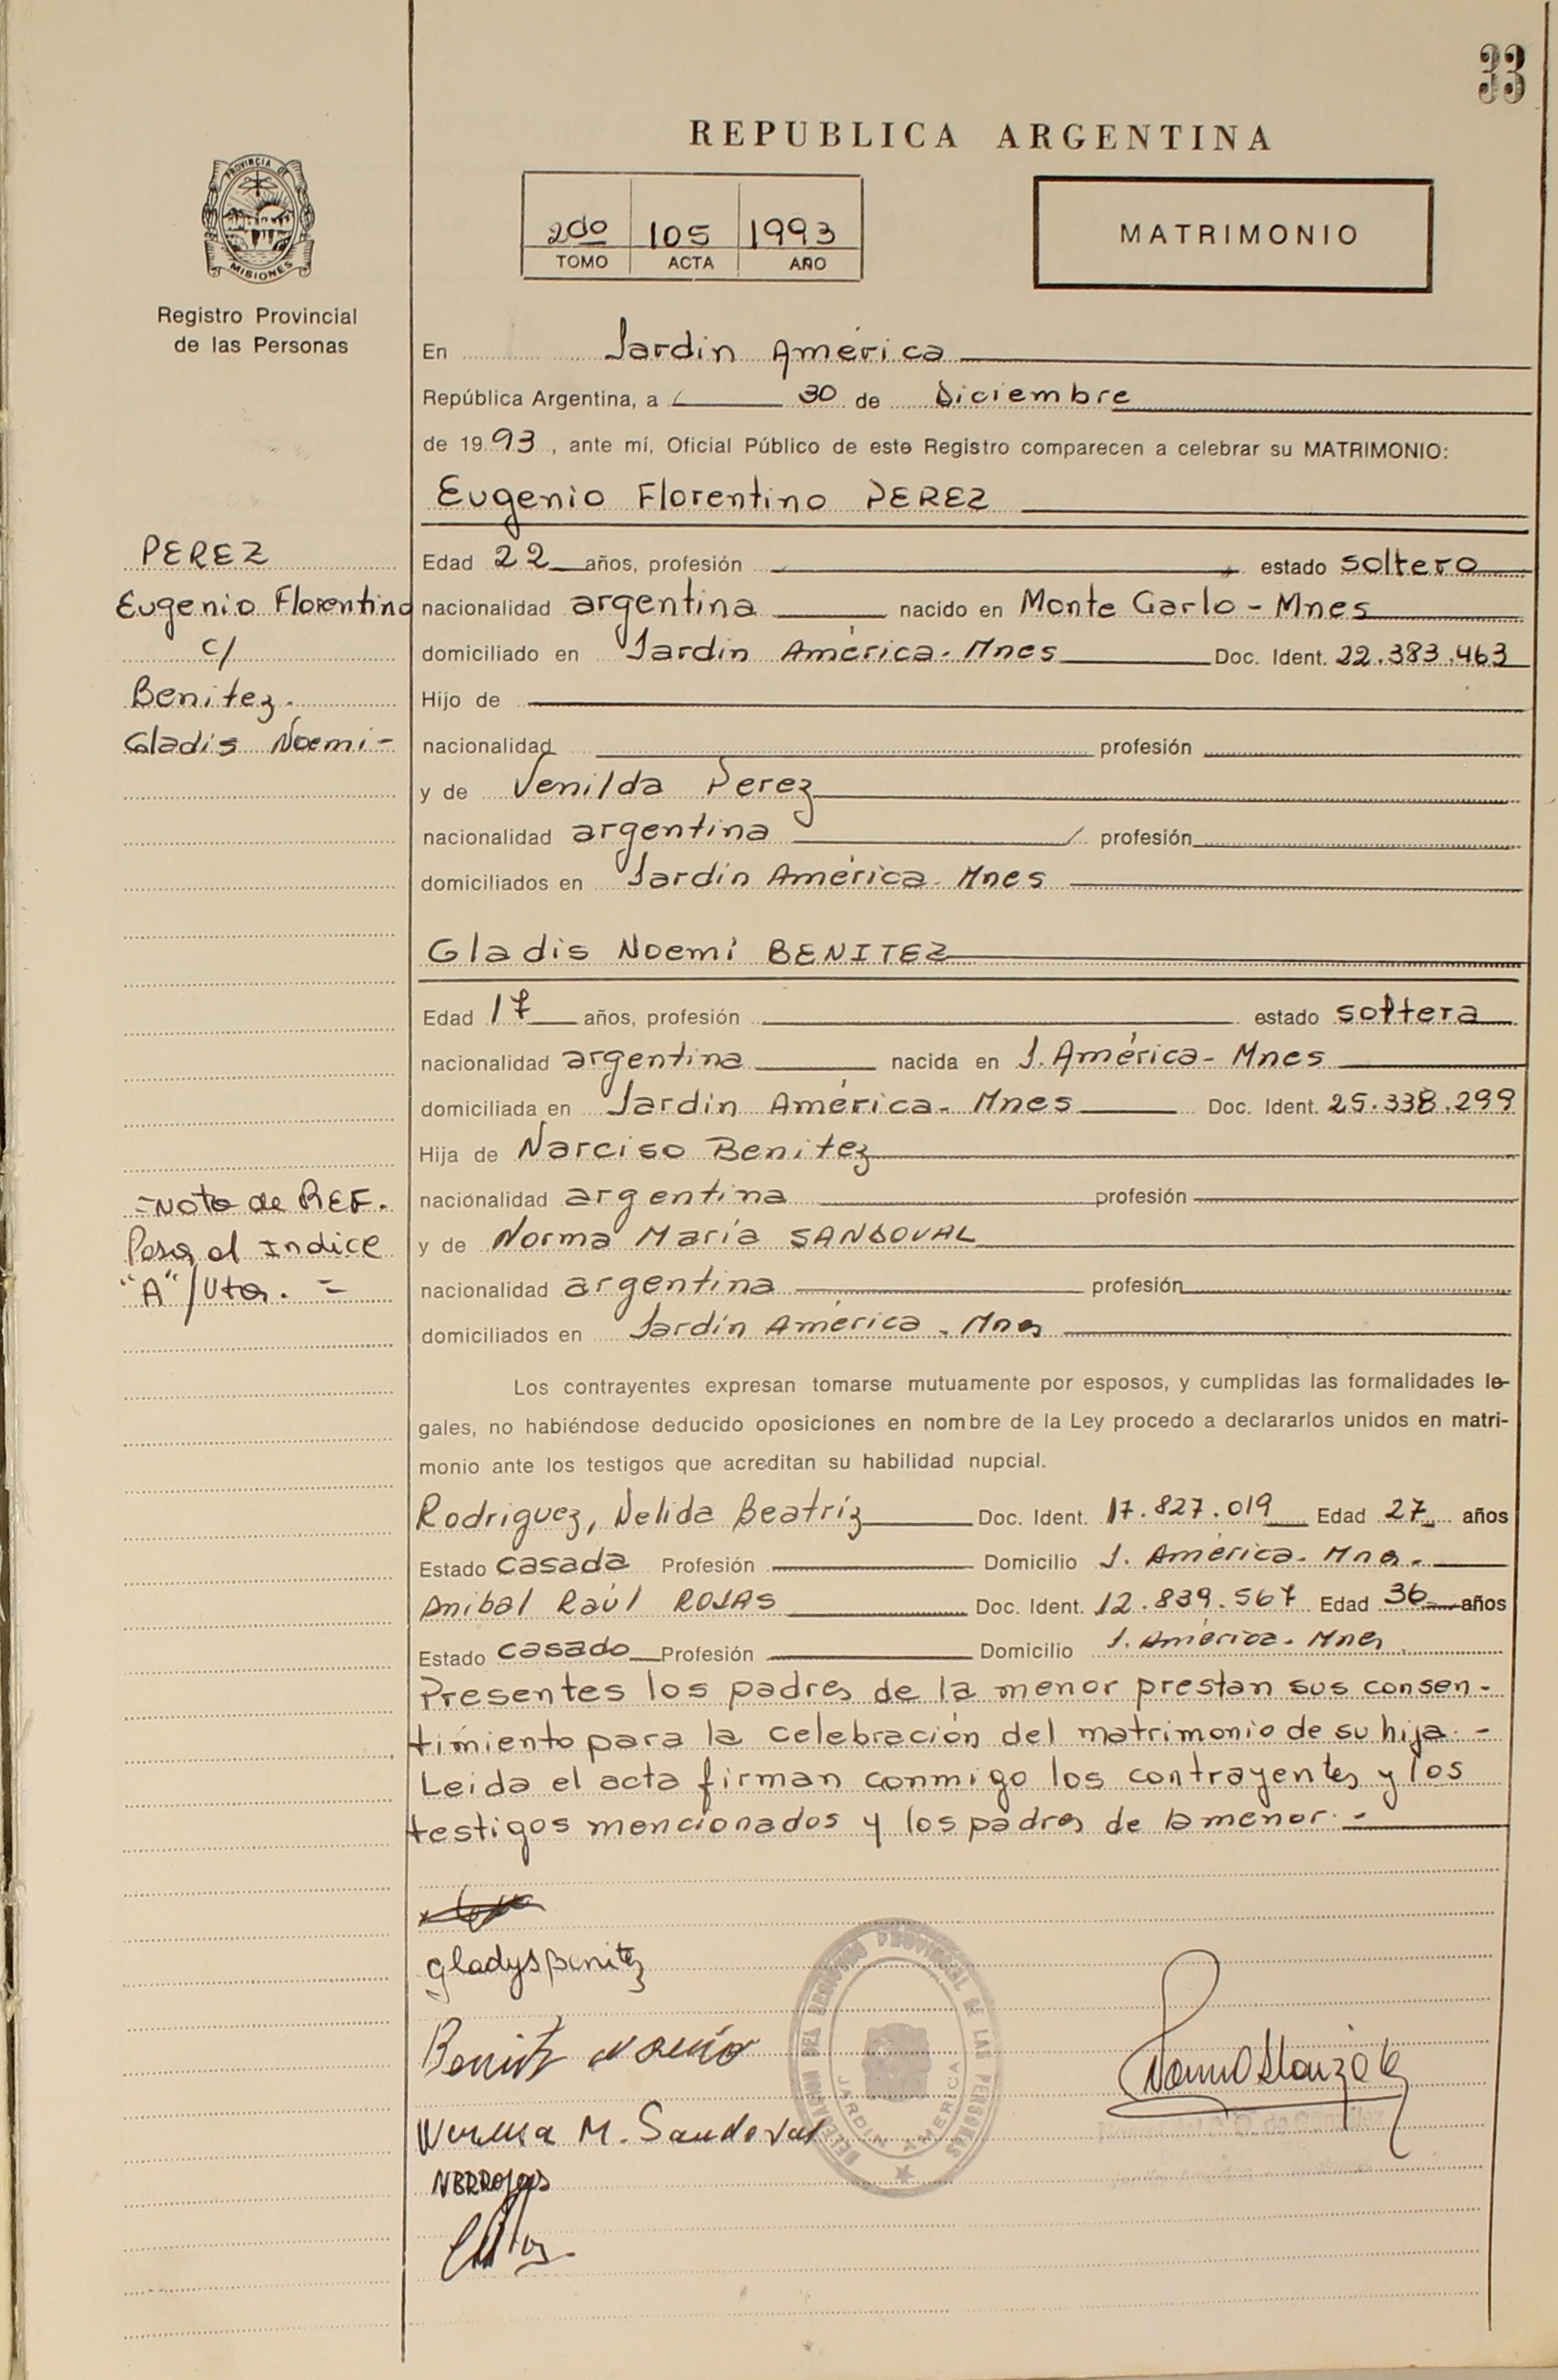 33
REPUBLICA ARGENTINA
PROVINCIA DE
MISIONES
Registro Provincial
de las Personas
2do 105 1993
TOMO ACTA AÑO
MATRIMONIO
En Jardin América
República Argentina, a 30 de Diciembre
de 19 93, ante mí, Oficial Público de este Registro comparecen a celebrar su MATRIMONIO:
Eugenio Florentino PEREZ
PEREZ
Eugenio Florentino
c/
Benitez.
Gladis Noemi-
Edad 22 años, profesión estado soltero
nacionalidad argentina nacido en Monte Carlo - Mnes
domiciliado en Jardin América - Mnes Doc. Ident. 22.383.463
Hijo de
nacionalidad profesión
y de Venilda Perez
nacionalidad argentina profesión
domiciliados en Jardin América - Mnes
Gladis Noemí BENITEZ
Edad 17 años, profesión estado soltera
nacionalidad argentina nacida en J. América - Mnes
domiciliada en Jardin América - Mnes Doc. Ident. 25.338.299
Hija de Narciso Benitez
nacionalidad argentina profesión
y de Norma María SANDOVAL
nacionalidad argentina profesión
domiciliados en Jardín América - Mnes
-Nota de REF.
Pasa al Indice
"A"/Vta. =
Los contrayentes expresan tomarse mutuamente por esposos, y cumplidas las formalidades le-
gales, no habiéndose deducido oposiciones en nombre de la Ley procedo a declararlos unidos en matri-
monio ante los testigos que acreditan su habilidad nupcial.
Rodriguez, Nelida Beatríz Doc. Ident. 17.827.019 Edad 27 años
Estado casada Profesión Domicilio J. América - Mnes.
Anibal Raúl ROJAS Doc. Ident. 12.839.567 Edad 36 años
Estado casado Profesión Domicilio J. América - Mnes.
Presentes los padres de la menor prestan sus consen-
timiento para la celebración del matrimonio de su hija.-
Leida el acta firman conmigo los contrayentes y los
testigos mencionados y los padres de la menor.-
gladys Benitez
Norma M. Sandoval
NBRRojas
DELEGACION DEL REGISTRO PROVINCIAL DE LAS PERSONAS
JARDIN AMERICA